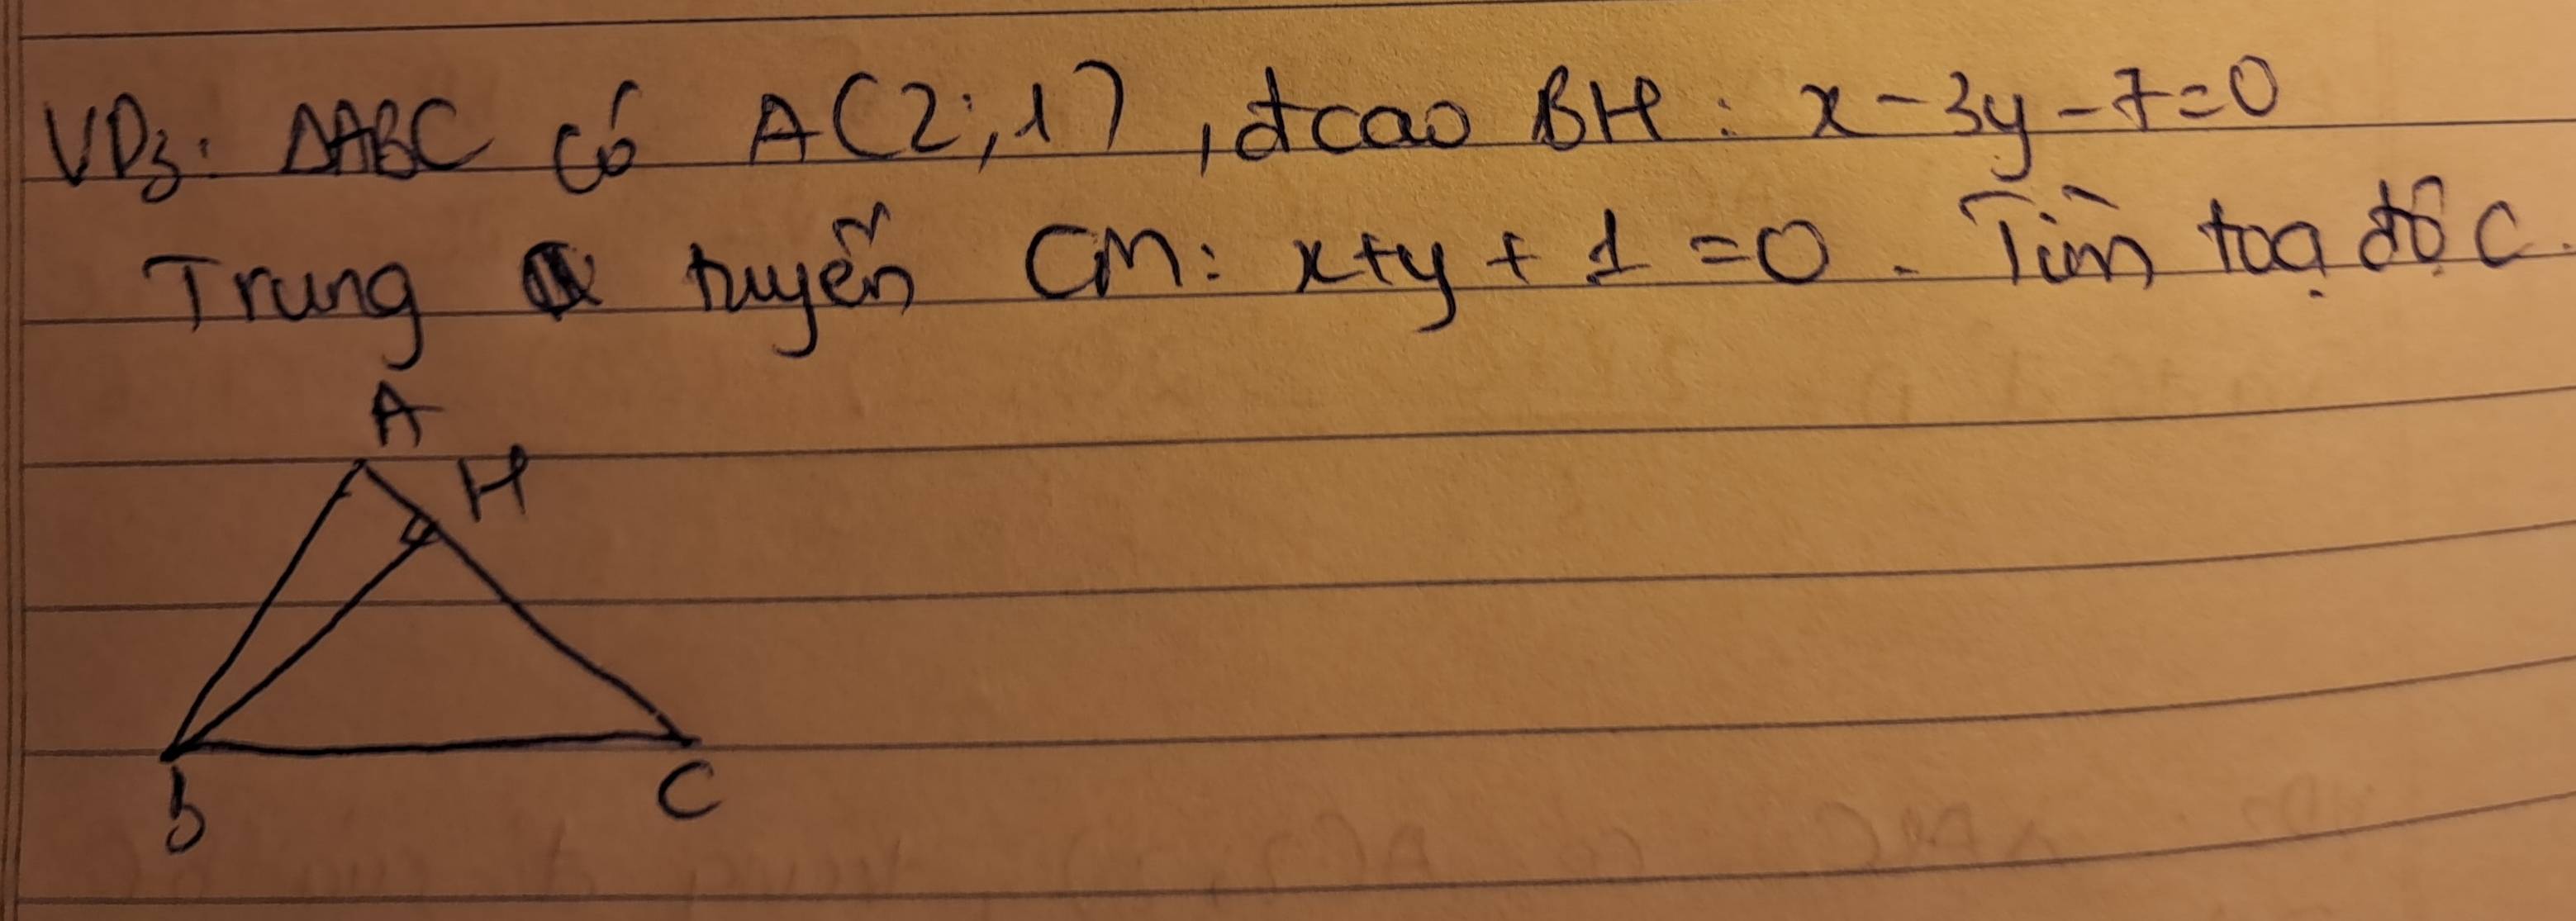 VD3: ΔABC có A(2;1), đcao BH: x-3y-7=0
Trung tuyến CM: x+y+1=0. Tìm toạ độ C.
A
H
B
C